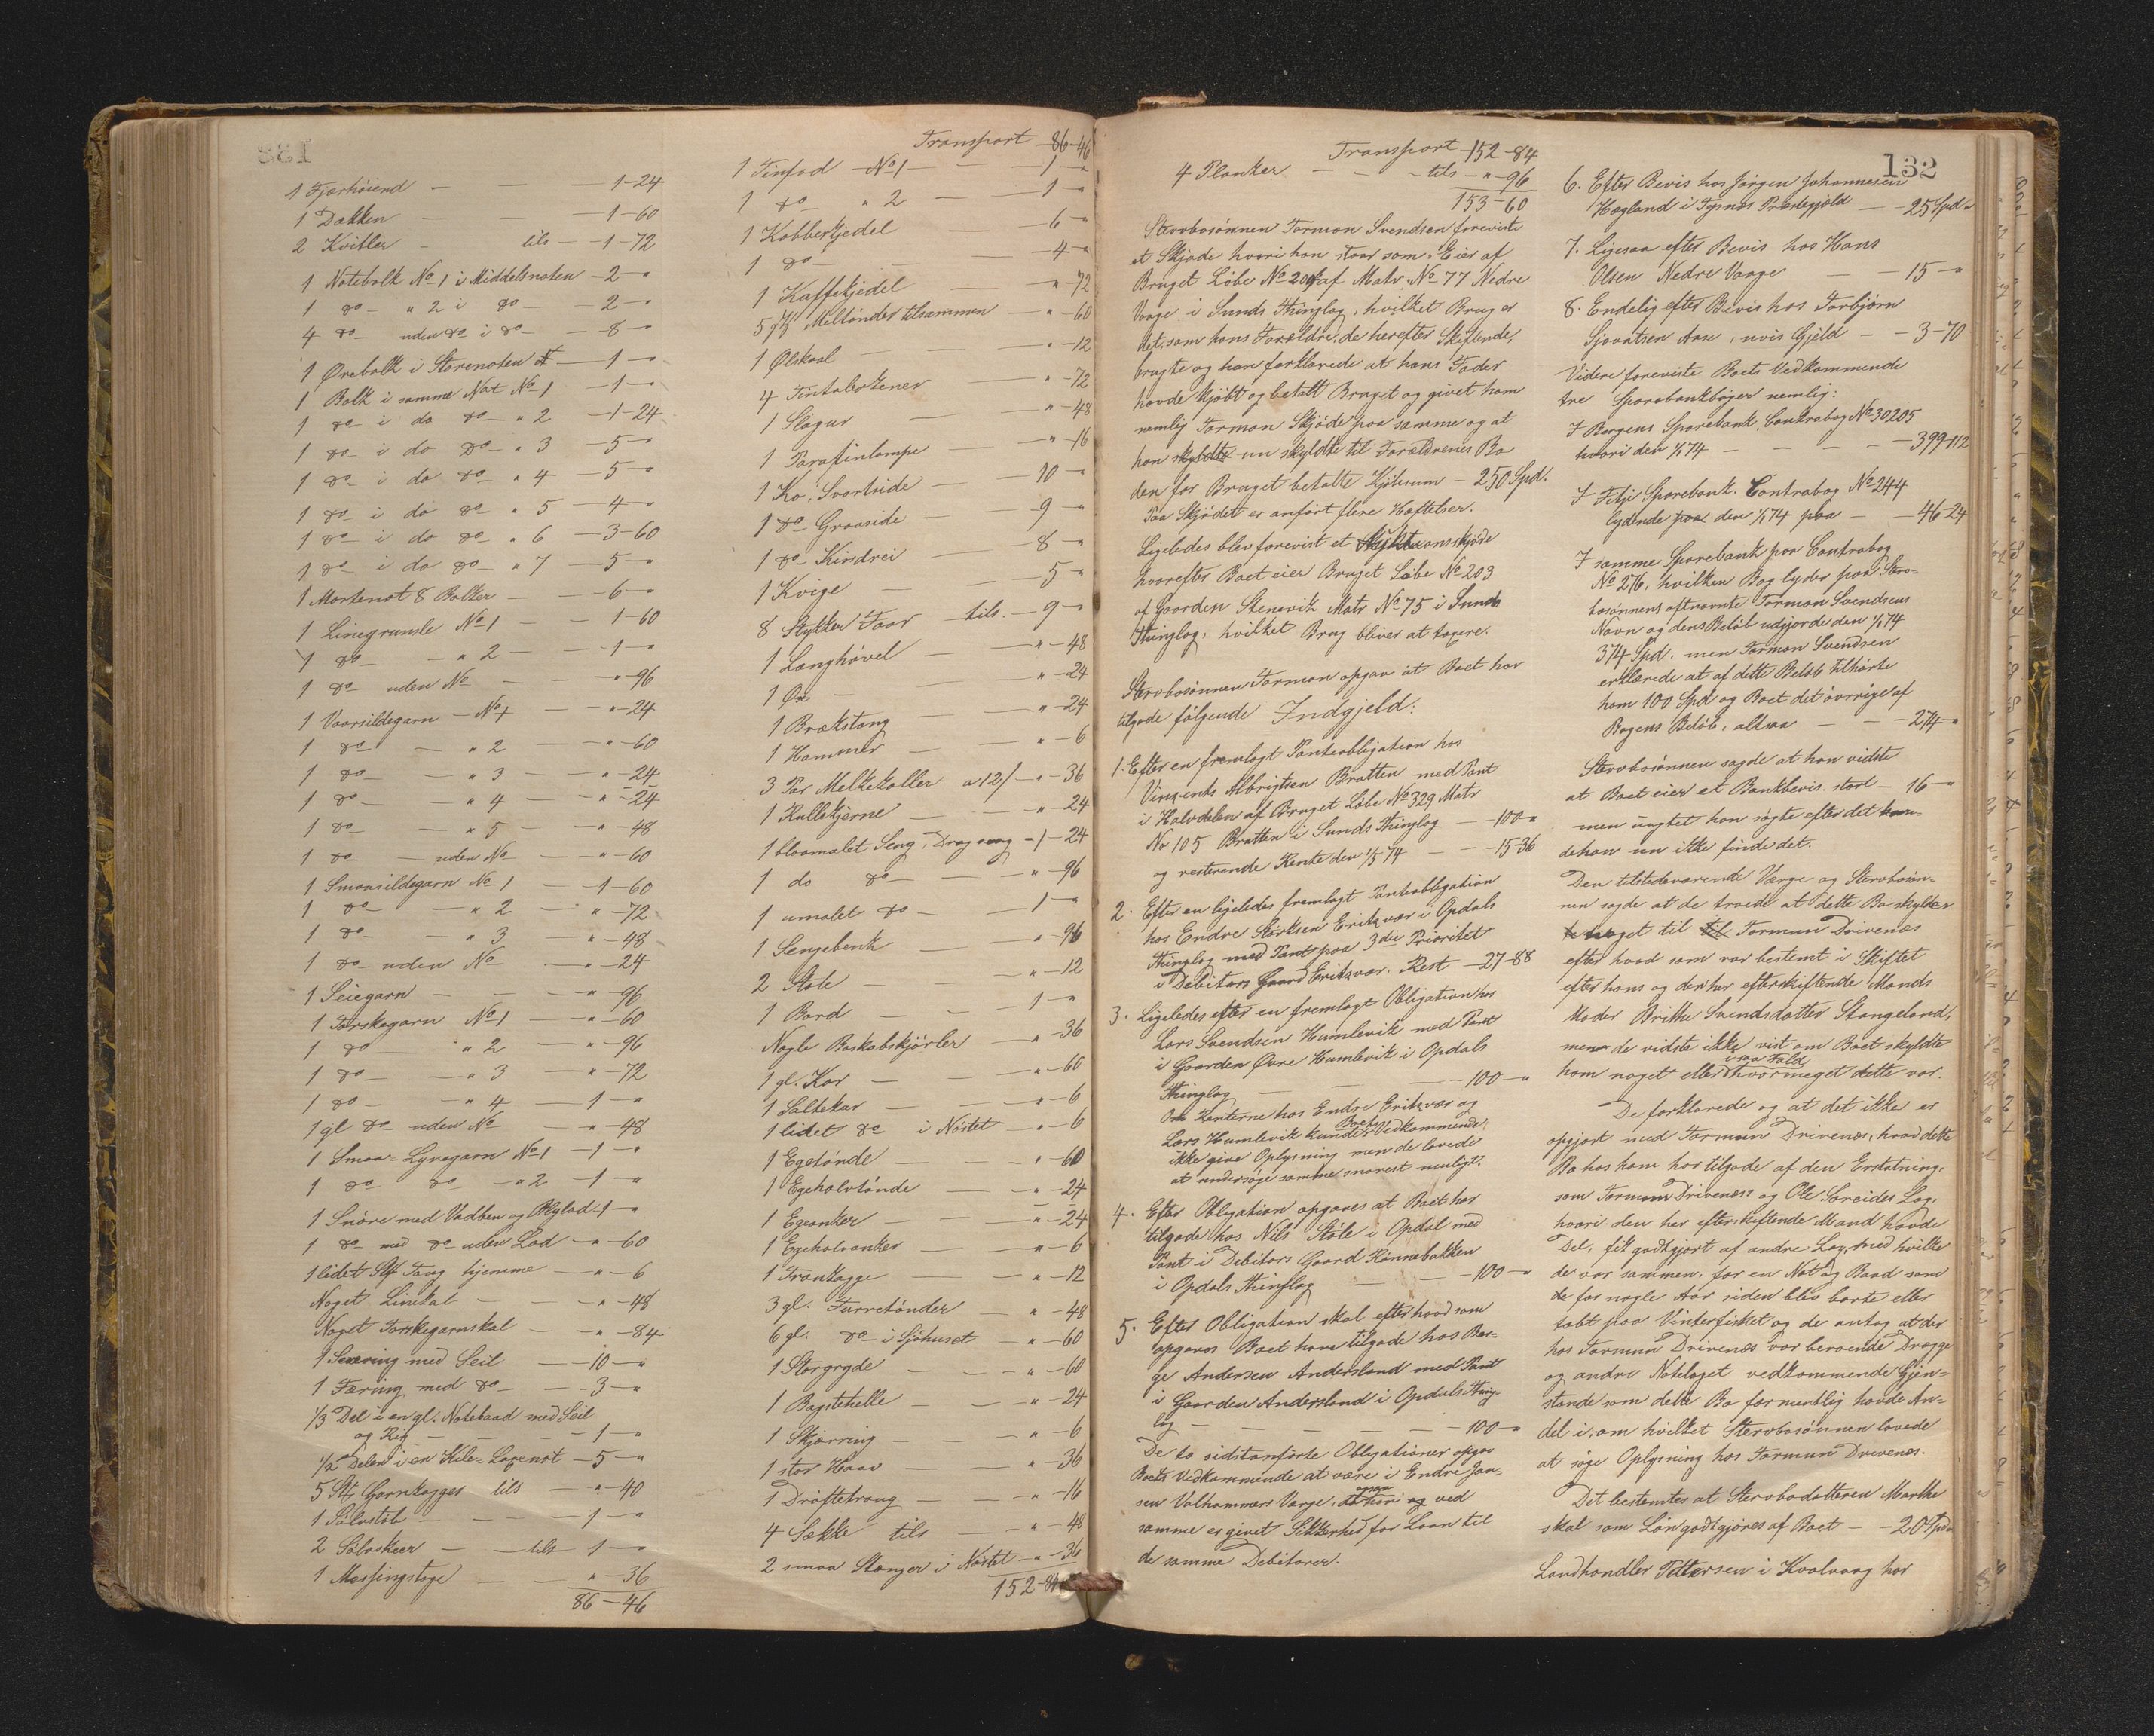 1 Fjerhöiend — — — 1-24
1 Dakken — — — 1-60
2 Kvitler — tils — 1-72
1 Notebolk No 1 i Middelsnoten — 2 — "
1 do — " 2 i do — 2 — "
4 do — uden do i do — 8 — "
1 Ørebolk i Storenoten — 1 — "
1 Bolk i samme Not No 1 — 1 — "
1 do i do do — " 2 — 1-24
1 do i do do — " 3 — 5 — "
1 do i do do " 4 — 5 — "
1 do i do do " 5 — 4 — "
1 do i do do " 6 — 3-60
1 do i do do " 7 — 5 — "
1 Mortenot 8 Bolker — — 6 — "
1 Linegrunsle No 1 — — 1-60
1 do — — " 2 — — 1 — "
1 do uden No — — " - 96
1 Vaarsildegarn — No 1 — " - 24
1 do — " 2 — — " - 60
1 do — " 3 — — " - 24
1 do — " 4 — — " - 24
1 do — " 5 — — " - 48
1 do — uden No — — " - 60
1 Smaasildegarn No 1 — 1-60
1 do — " 2 — " - 72
1 do — " 3 — " - 48
1 do uden No — " - 24
1 Seiegarn — — — " - 96
1 Torskegarn No 1 — — " - 60
1 do — " 2 — " - 96
1 do — " 3 — " - 72
1 do — " 4 — 1 — "
1 gl do uden No — " - 48
1 Smaa-Lyregarn No 1 — 1 — "
1 do do — " 2 — 1 — "
1 Snöre med Vadben og Blylod — 1 — "
1 do med do uden Lod — " - 60
1 lidet Stk Toug hjemme — " - 6
Noget Linekal — — " - 48
Noget Torskegarnskal — " - 84
1 Sexæring med Seil — 10 — "
1 Færing med do — — 3 — "
1/3 Del i en gl. Notebaad med Seil
og Rig — — — — 1 — "
1/2 Delen i en Kile-Laxenot — 5 — "
5 Stk Garnkagger tils — " - 40
1 Sölvstöb — — — 1 — "
2 Sölvskeer — — tils 1 — "
1 Messingstage — — " - 36
86-46
Transport 86-46
1 Tinfad — No 1 — — 1 — "
1 do " 2 — 1 — "
1 Kobberkjedel — 6 — "
1 do — — 4 — "
1 Kaffekjedel — " - 72
5 Stk Meltönder tilsammen — " - 60
1 Ølskaal — — " - 12
4 Tintalerkener — " - 72
1 Slagur — " - 48
1 Parafinlampe — " - 16
1 Ko, Svartside — 10 — "
1 do Graaside — 9 — "
1 do Kindrei — 8 — "
1 Kvige — — 5 — "
8 Stykker Faar — tils. — 9 — "
1 Langhövel — — " - 48
1 Øx — — " - 24
1 Brækstang — " - 24
1 Hammer — — " - 6
3 Par Melkekoller a 12/ — " - 36
1 Rullekjerne — — " - 24
1 blaamalet Seng, — 1 - 24
1 do do — — " - 96
1 umalet do — — 1 — "
1 Sengebenk — " - 96
2 Stole — — " - 12
1 Bord — — 1 — "
Nogle Boskabskjörler — " - 36
1 gl. Kar — — " - 60
1 Saltekar — — " - 6
1 lidet do i Nöstet — " - 6
1 Egetönde — " - 60
1 Egehalvtönde — " - 24
1 Egeanker — — " - 24
1 Egehalvanker — " - 6
1 Trankagge — " - 12
3 gl. Furretönder — " - 48
6 gl. do i Sjöhuset — " - 60
1 Storgryde — " - 60
1 Bagstehelle — " - 24
1 Skjærring — " - 6
1 stor Haav — " - 36
1 Dröftetroug — " - 16
4 Sække tils — " - 48
2 smaa Stænger i Nöstet — " - 36
152-84
Transport — 152-84
4 Planker — — — tils — " - 96
153-60
Stervbosönnen Tormon Svendsen foreviste
et Skjöde hvori han staar som Eier af
Bruget Löbe No 204 af Matr. No 77 Nedre
Vaage i Sunds Thinglag, hvilket Brug er
det, som hans Forældre, de herefter Skiftende,
brugte og han forklarede at hans Fader
havde kjöbt og betalt Bruget og givet ham
nemlig Tormon Skjöde paa samme og at
han skyldte nu skyldte til Forældrenes Bo
den for Bruget betalte Kjöbesum — 250 Spd.
Paa Skjödet er anfört flere Heftelser.
Ligeledes blev forevist et Auktionsskjöde
hvorefter Boet eier Bruget Löbe No 203
af Gaarden Stenevik Matr No 75 i Sunds
Thinglag, hvilket Brug bliver at taxere.
Stervbosönnen Tormon opgav at Boet har
tilgode følgende Indgjeld:
1. Efter en fremlagt Panteobligation hos
Vinzents Albrigtsen Bratten med Pant
i Halvdelen af Bruget Löbe No 329 Matr
No 105 Bratten i Sunds Thinglag — 100 — "
og resterende Rente den 1/5 74 — — 15-36
2. Efter en ligeledes fremlagt Panteobligation
hos Endre Størksen Eriksvær i Opdals
Thinglag med Pant paa 3die Prioritet
i Debitors Gaard Eriksvær. Rest — 27-88
3. Ligeledes efter en fremlagt Obligation hos
Lars Svendsen Humlevik med Pant
i Gaarden Øvre Humlevik i Opdals
Thinglag — — — 100 — "
Om Renterne hos Endre Eriksvær og
Lars Humlevik kunde Boets Vedkommende
ikke give Oplysning men de lovede
at undersöge samme snarest muligt.
4. Efter Obligation opgaves at Boet har
tilgode hos Nils Støle i Opdal med
Pant i Debitors Gaard Rönnebakken
i Opdals Thinglag — — — 100 — "
5. Efter Obligation skal efter hvad som
opgaves Boet have tilgode hos Bør-
ge Andersen Andersland med Pant
i Gaarden Andersland i Opdals Thing-
lag — — — — — 100 — "
De to sidstanförte Obligationer opgav
Boets Vedkommende at være i Endre Jan-
sen Valhammers Værge, opgav ved
samme er givet Sikkerhed for Laan til
de samme Debitorer.
132
6. Efter Bevis hos Jörgen Johannesen
Hegland i Tysnes Præstegjeld — 25 Spd "
7. Ligesaa efter Bevis hos Hans
Olsen Nedre Vaage — — 15 — "
8. Endelig efter Bevis hos Torbjörn
Sjovatsen Aase, uvis Gjeld — — 3-70
Videre foreviste Boets Vedkommende
tre Sparebankböger nemlig:
I Bergens Sparebank, Contrabog No 30205
hvori den 1/1 74 — — — — 399-112
I Fitje Sparebank. Contrabog No 244
lydende paa den 1/1 74 paa — — 46-24
I samme Sparebank paa Contrabog
No 276, hvilken Bog lyder paa Sterv-
bosönnens oftnævnte Tormon Svendsens
Navn og dens Belöb udgjorde den 1/1 74
374 Spd. men Tormon Svendsen
erklærede at af dette Belöb tilhörte
ham 100 Spd og Boet det övrige af
Bogens Belöb, altsaa — — — 274 — "
Stervbosönnen sagde at han vidste
at Boet eier et Bankbevis stort — 16 — "
men uagtet han sögte efter det kun-
de han nu ikke finde det.
Den tilstedeværende Værge og Stervbosön-
nen sagde at de troede at dette Bo skylder
noget til Tormun Drivenæs
efter hvad som var bestemt i Skiftet
efter hans og den her efterskiftende Mands
Moder Brithe Svendsdatter Stangeland,
men de vidste ikke vist om Boet skyldte
ham noget eller i saa Fald hvormeget dette var.
De forklarede og at det ikke er
opgjort med Tormun Drivenes, hvad dette
Bo hos ham har tilgode af den Erstatning,
som Tormun Driveness og Ole Søreides Lag,
hvori den her efterskiftende Mand havde
Del, fik godtgjort af andre Lag, med hvilke
de var sammen, for en Not og Baad som
de for nogle Aar siden blev borte eller
tabt paa Vinterfisket og de antog at der
hos Tormun Drivenes var beroende Drægge
og andre Notelaget vedkommende Gjen-
stande som dette Bo formentlig havde An-
del i, om hvilket Stervbosönnen lovede
at söge Oplysning hos Tormun Drivenes.
Det bestemtes at Stervbodatteren Marthe
skal som Lön godtgjöres af Boet — — 20 Spd
Landhandler Pettersen i Kvalvaag har